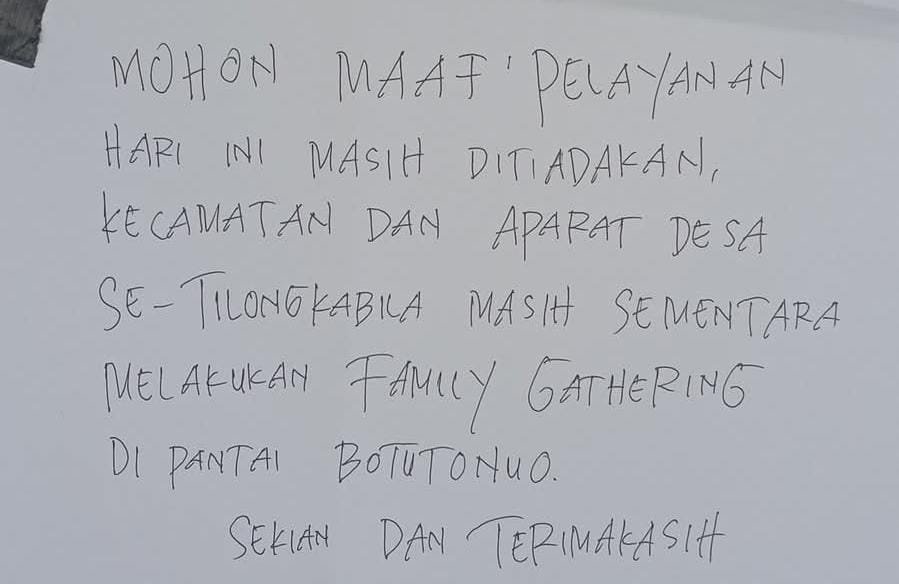 MOHON MAAF' PELAYANAN
HARI INI MASIH DITIADAKAN,
KECAMATAN DAN APARAT DESA
SE-TILONGKABILA MASIH SEMENTARA
MELAKUKAN FAMILY GATHERING
DI PANTAI BOTUTONUO.
SEKIAN DAN TERIMAKASIH